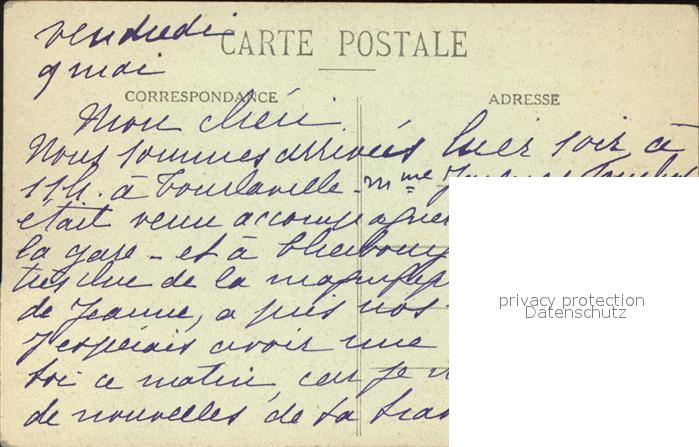 vendredi
9 mai
CARTE POSTALE
CORRESPONDANCE
ADRESSE
Mon chéri
Nous sommes arrivés hier soir à
11h. à Tourlaville - Mme
était venu accompagner
la gare - et à Cherbourg
de la
de Jeanne, a pris nos
J'espérais avoir une
toi ce matin, car je
de nouvelles de ta
privacy protection
Datenschutz